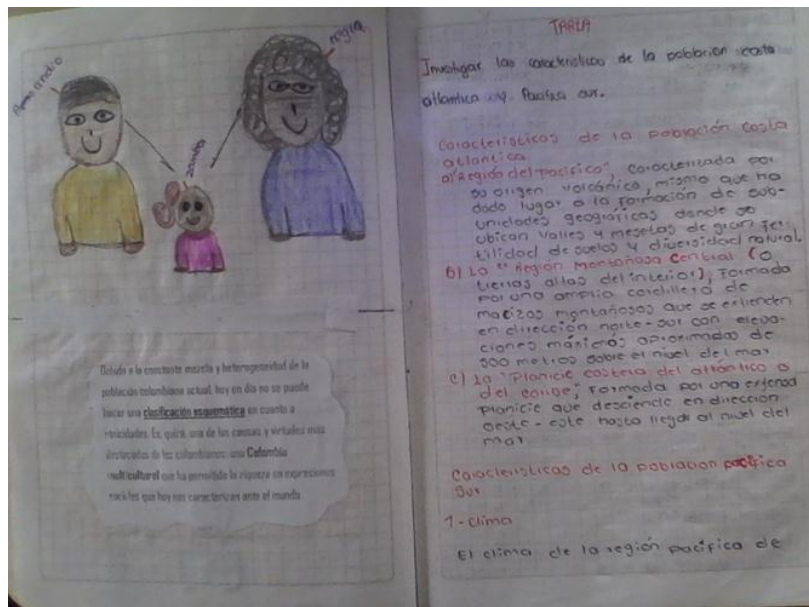 indio
zambo
negra
Debido a la constante mezcla y heterogeneidad de la
población colombiana actual, hoy en día no se puede
hacer una clasificación esquemática en cuanto a
etnicidades. Es, quizá, una de las causas y virtudes más
destacadas de los colombianos: una Colombia
multicultural que ha permitido la riqueza en expresiones
sociales que hoy nos caracterizan ante el mundo
TAREA
Investigar las caracteristicas de la poblacion costa
atlantica y Pacifica sur.
Caracteristicas de la población costa
atlantica
a) "Región del pacifico", Caracterizada por
su origen volcánico, mismo que ha
dado lugar a la formación de sub-
unidades geográficas donde se
ubican valles y mesetas de gran fer-
tilidad de suelos y diversidad natural.
b) La "Región montañosa central (o
tierras altas del interior), Formada
por una amplia cordillera de
macizos montañosos que se extienden
en dirección norte-sur con eleva-
ciones máximas aproximadas de
500 metros sobre el nivel del mar
c) La "Planicie costera del atlántico o
del caribe", Formada por una extensa
Planicie que desciende en dirección
oeste-este hasta llegar al nivel del
mar
Caracteristicas de la poblacion pacifica
sur
1-clima
El clima de la región pacifica de